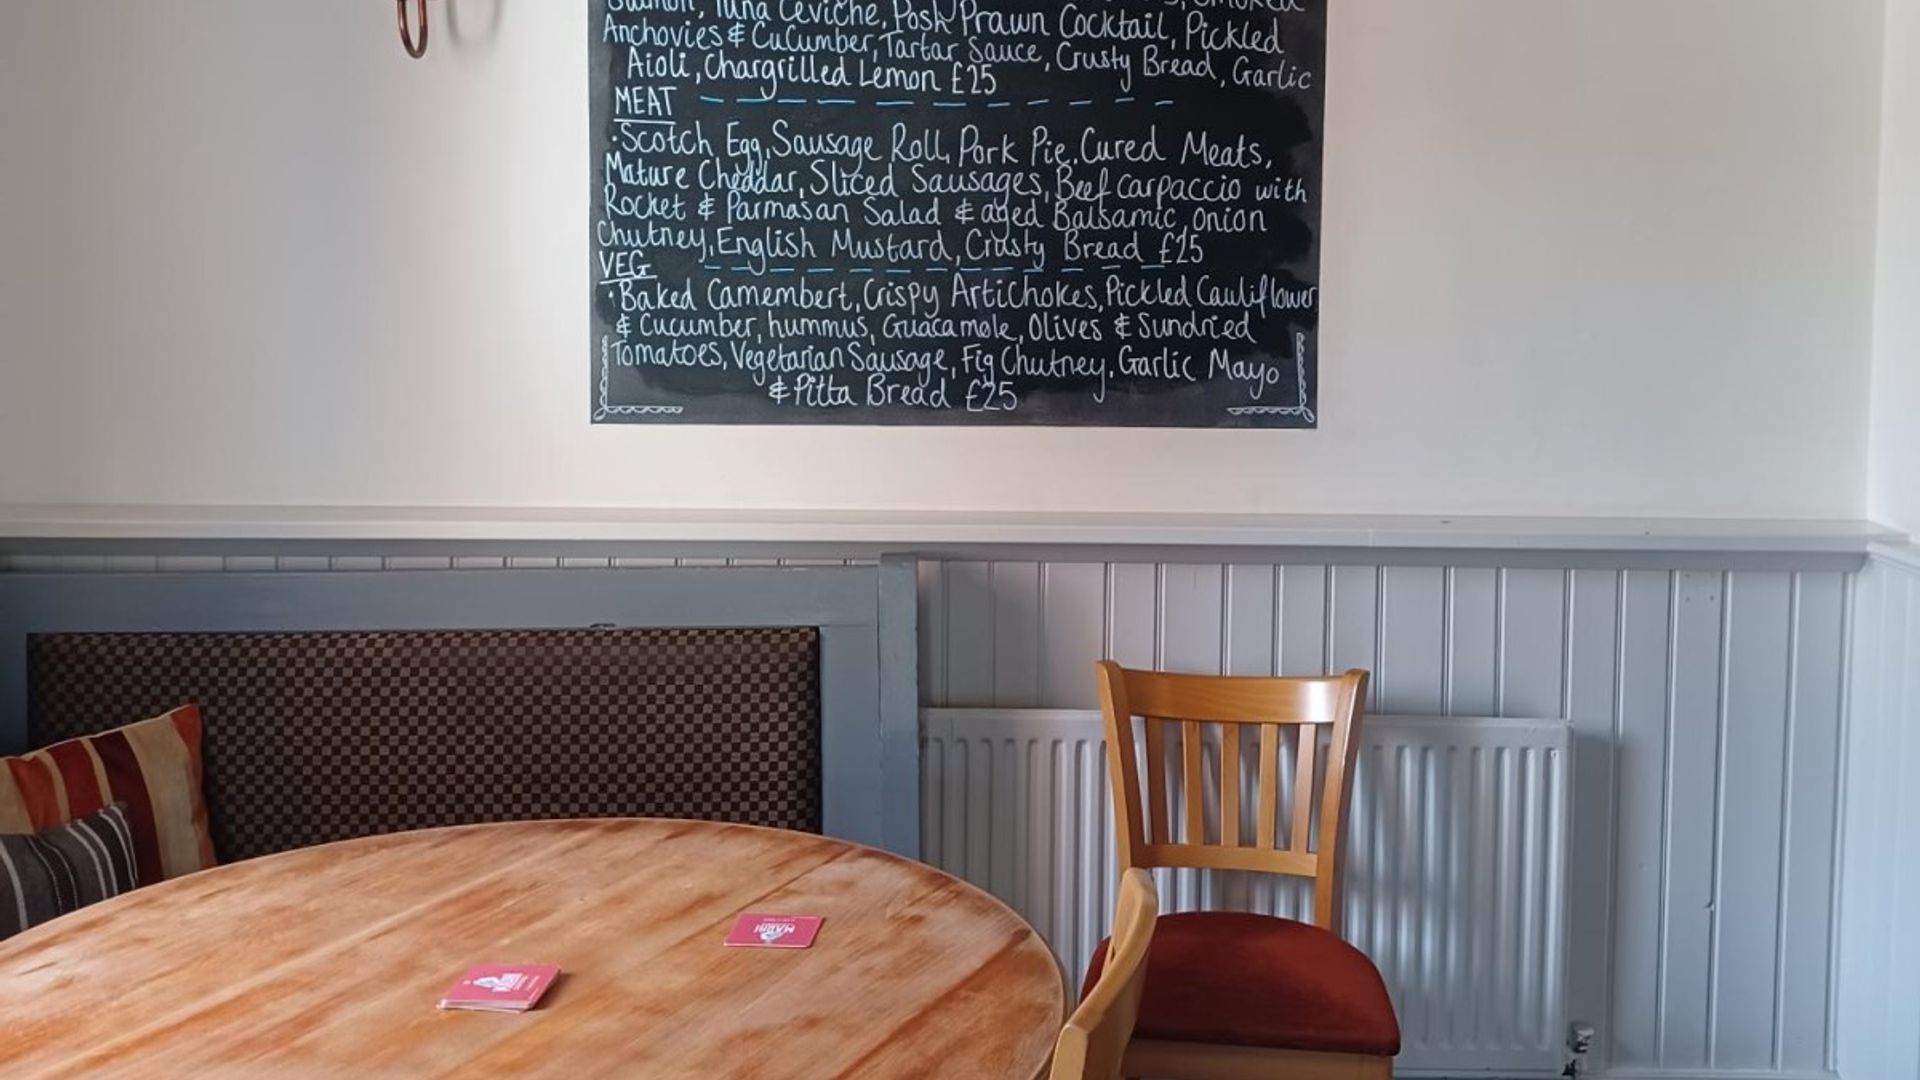 Salmon, Tuna Ceviche, Posh Prawn Cocktail, Pickled
Anchovies & Cucumber, Tartar Sauce, Crusty Bread, Garlic
Aioli, Chargrilled Lemon £25
MEAT
·Scotch Egg, Sausage Roll, Pork Pie, Cured Meats,
Mature Cheddar, Sliced Sausages, Beef Carpaccio with
Rocket & Parmasan Salad & aged Balsamic, Onion
Chutney, English Mustard, Crusty Bread £25
VEG
·Baked Camembert, Crispy Artichokes, Pickled Cauliflower
& Cucumber, hummus, Guacamole, Olives & Sundried
Tomatoes, Vegetarian Sausage, Fig Chutney, Garlic Mayo
& Pitta Bread £25